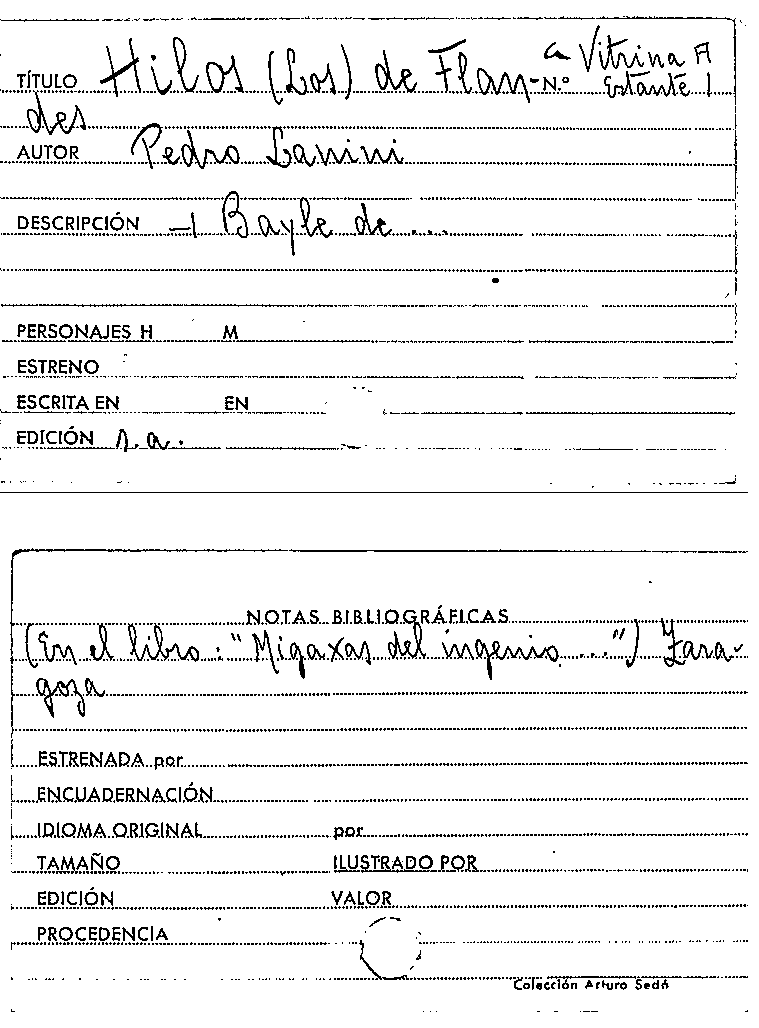 TÍTULO Hilos (Los) de Flan- N.º Vitrina A
Estante 1
des
AUTOR Pedro Lanini
DESCRIPCIÓN -1 Bayle de ...
PERSONAJES H M
ESTRENO
ESCRITA EN EN
EDICIÓN s.a.
NOTAS BIBLIOGRÁFICAS
(En el libro: "Migaxas del ingenio ...") Zara-
goza
ESTRENADA por
ENCUADERNACIÓN
IDIOMA ORIGINAL por
TAMAÑO ILUSTRADO POR
EDICIÓN VALOR
PROCEDENCIA
Colección Arturo Sedó